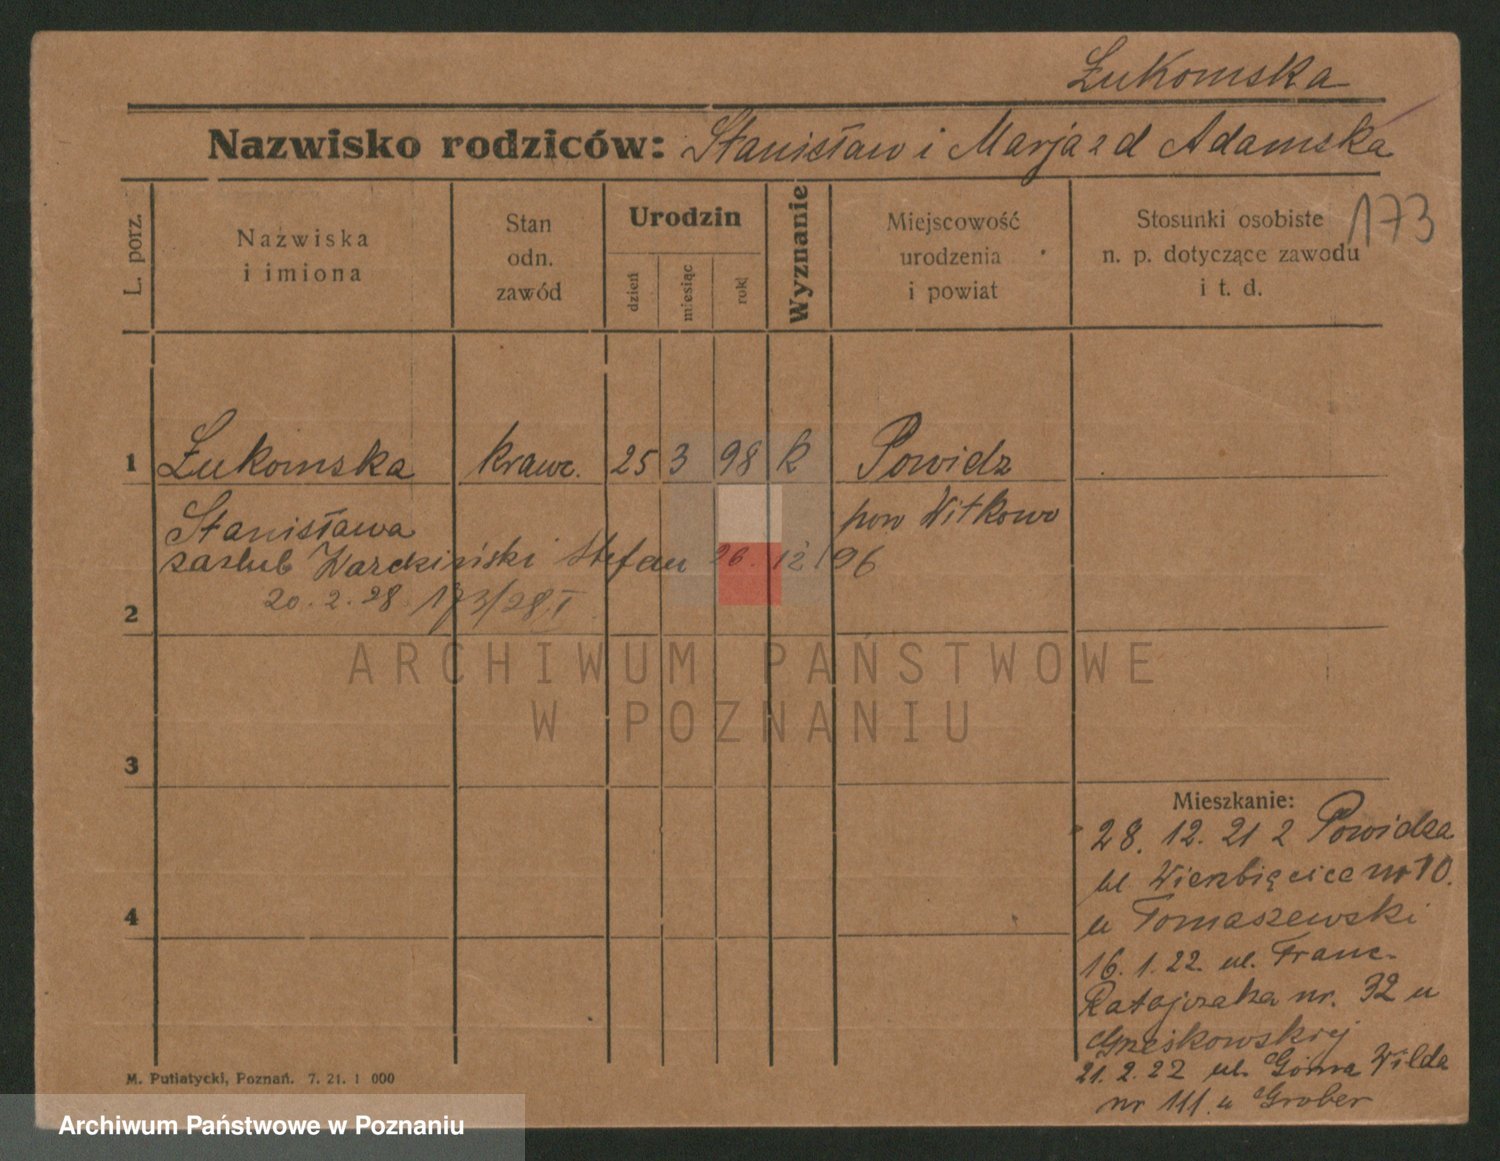 Łukomska
Nazwisko rodziców: Stanisław i Marja z d Adamska
L. porz.
Nazwiska
i imiona
Stan
odn.
zawód
Urodzin
dzień
miesiąc
rok
Wyznanie
Miejscowość
urodzenia
i powiat
Stosunki osobiste
n. p. dotyczące zawodu
i t. d.
173
1 Łukomska krawc. 25 3 98 k Powidz
Stanisława pow Witkowo
zaslub Stefan 26. 12 96
20. 2. 28 173/28.I
2
ARCHIWUM PAŃSTWOWE
W POZNANIU
3
4
Mieszkanie:
28. 12. 21 z Powidza
ul Wierzbięcice nr 10.
u Tomaszewski
16. 1. 22. ul. Franc.
Ratajczaka nr. 32 u
21. 2. 22 ul. Górna Wilda
nr 111. u Grober
M. Putiatycki, Poznań. 7. 21. 1 000
Archiwum Państwowe w Poznaniu